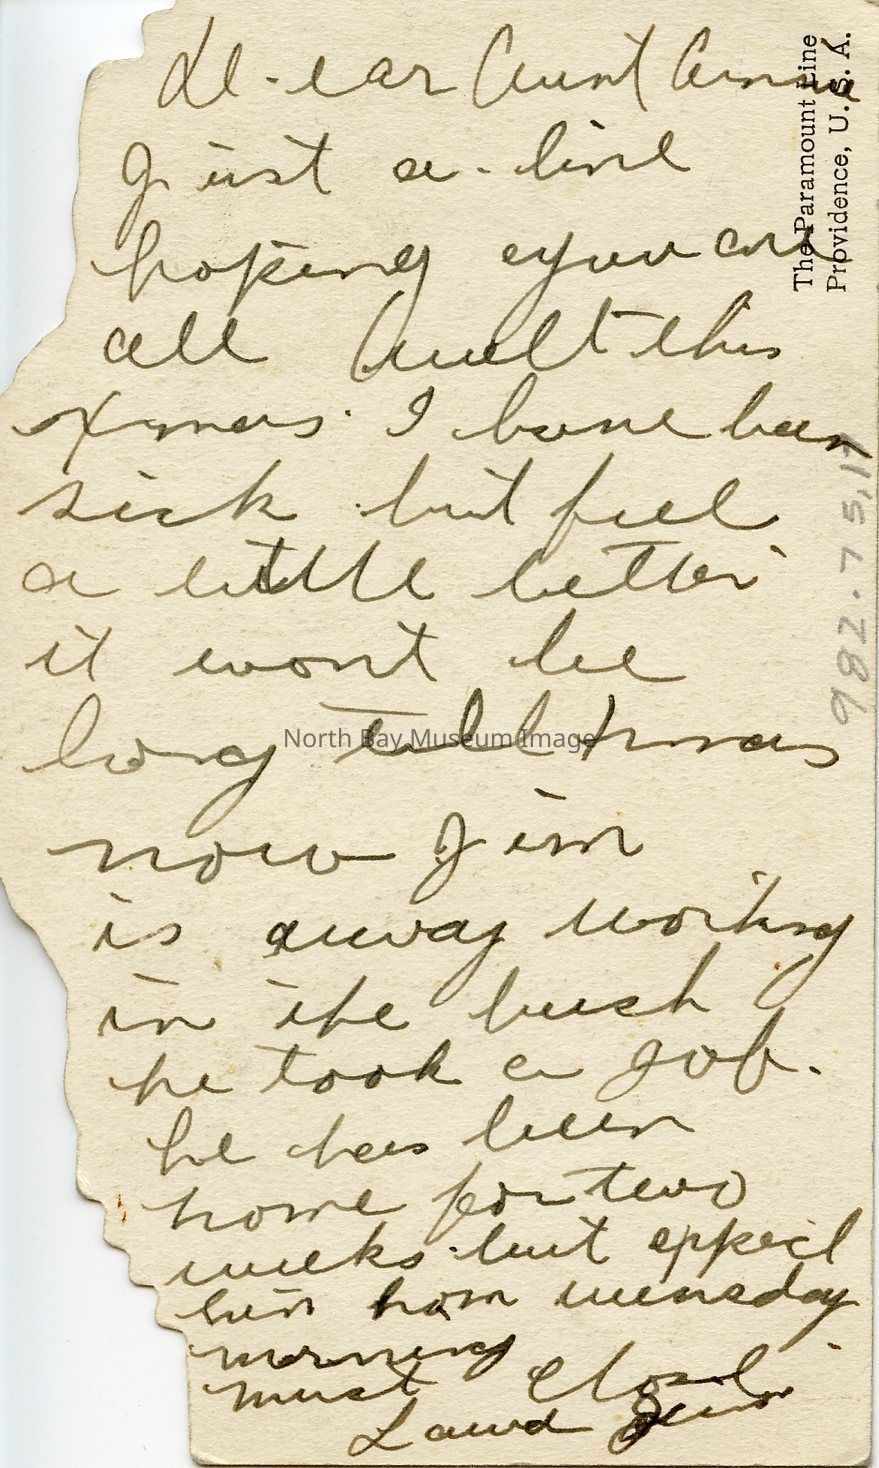 De-ear Aunt
Just a-line
hoping you are
all well this
Xmas. I have been
sick but feel
a little better
it wont be
long till Xmas
now Jim
is away working
in the bush
he took a job.
he has been
home for two
weeks but
him hom wensday
morning
must close
The Paramount Line
Providence, U. S. A.
982.75.17
North Bay Museum Image